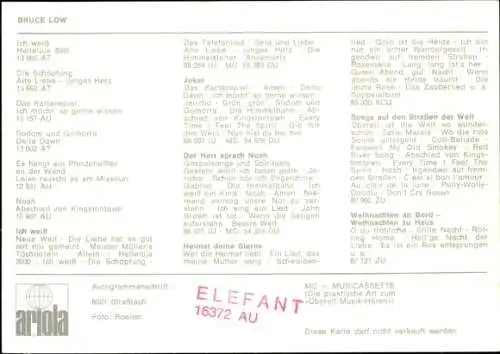 BRUCE LOW
Ich weiß
Halleluja 2000
13 905 AT
Die Schöpfung
Alte Liebe - junges Herz
13 552 AT
Das Kartenspiel
Ich möcht' so gerne wissen
13 157 AU
Sodom und Gomorra
Delta Dawn
13 002 AT
Es hängt ein Pferdehalfter
an der Wand
Leise rauscht es am Missouri
12 831 AU
Noah
Abschied von Kingstontown
10 407 AU
Ich weiß
Neue Welt - Die Liebe hat es gut
mit mir gemeint - Meister Müller's
Töchterlein - Allein - Halleluja
2000 - Ich weiß - Die Schöpfung -
Das Telefonlied - Geld und Liebe
Alte Liebe - junges Herz - Die
Himmelsleiter - Annemarie
Joker
Das Kartenspiel - Amen - Delta
Dawn - Ich möcht' so gerne wissen -
Jericho - Grün, grün - Sodom und
Gomorra - Die Himmelbahn - Ab-
schied von Kingstontown - Every
Time I Feel The Spirit -
den Wein - Nun hist du bei mir
Der Herr sprach Noah
Gospelsongs und Spirituals
Gestern wähl' ich beten gute - Je-
richo - Schon hör ich Engelschöre -
Gabriel - Die Himmelbahn - Ich
weiß ein Kind - Noah - Amen - Nie-
mand vermag unsre Not zu ver-
stehn - Ich sing ein Lied - John
Brown ist tot - Wenn die Heiligen
auferstehn - Bess're Welt
Heimat deine Sterne
Wer die Heimat liebt - Ein Lied, das
meine Mutter sang - Schwalben-
lied - Grün ist die Heide - Ich bin
nur ein armer Wandergesell - Ir-
gendwo auf fremden Straßen -
Rosemarie - Lang, lang ist's her -
Guten Abend, gut' Nacht - Wenn
abends die Heide träumt - Die
letzte Rose - Das Zauberlied u. a.
Doppelalbum
Songs auf den Straßen der Welt
Überall ist die Welt so wunder-
schön - Santa Maria - Wo die rote
Sonne untergeht - Cuff-Ballade -
Farewell My Old Smokey - Red
River Song - Abschied von Kings-
tontown - Every Time I Feel The
Spirit - Noah - Irgendwo auf frem-
den Straßen - C'est si bon l'amour -
Au clair de la lune - Polly-Wolly-
Doodle - Don't Cry Susan
Weihnachten an Bord -
Weihnachten zu Haus
O du fröhliche - Stille Nacht - Rol-
ling Home - Heil'ge Nacht der
Liebe - Es ist ein Ros entsprungen
u. a.
ariola
Autogrammanschrift:
8021 Straßlach
Foto: Roelen
ELEFANT
16372 AU
MC = MUSICASSETTE
(Die praktische Art zum
-Überall-Musik-Hören-)
Diese Karte darf nicht verkauft werden